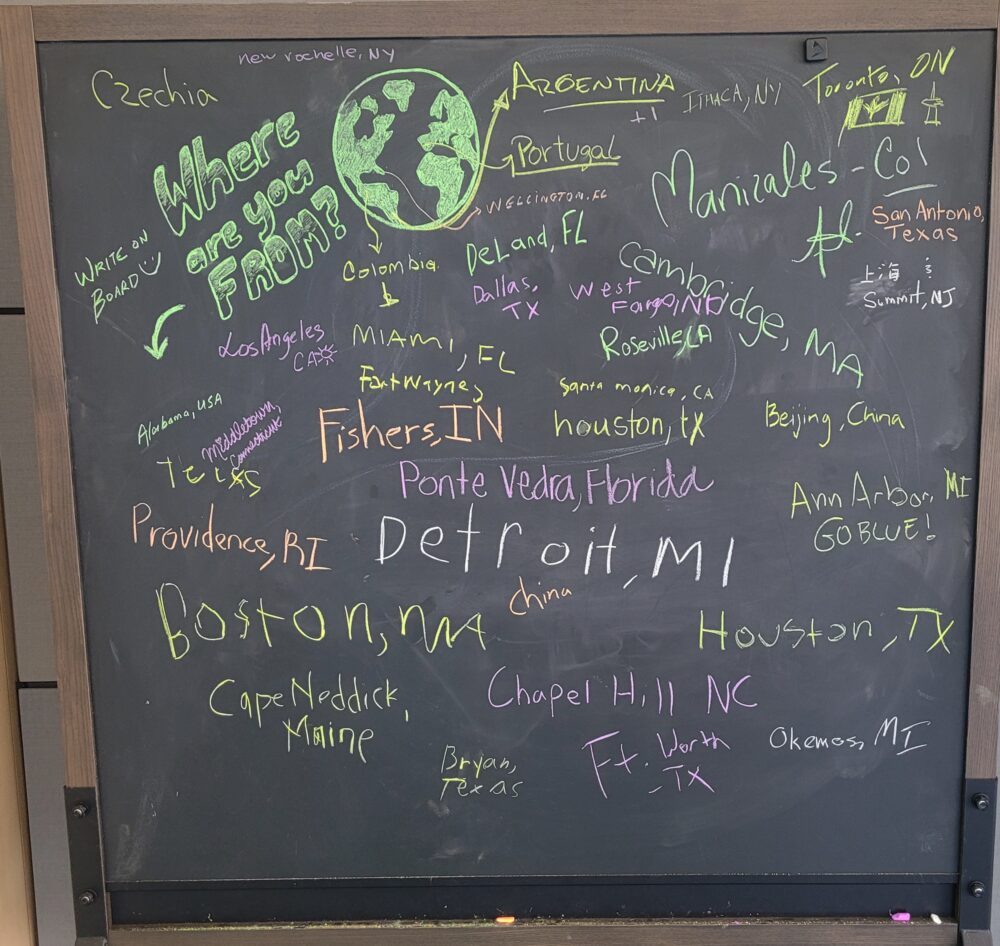 new rochelle, NY
Czechia
Where
are you
FROM?
WRITE ON
BOARD
ARGENTINA
+1
ITHACA, NY
Toronto, ON
Portugal
WELLINGTON, FL
Manizales - Col
San Antonio,
Texas
上海
Summit, NJ
Colombia
DeLand, FL
Dallas,
TX
West
Fargo, ND
Cambridge, MA
Roseville, CA
Los Angeles
CA
MIAMI, FL
Fort Wayne,
Santa monica, CA
Alabama, USA
Middletown,
Connecticut
Texas
Fishers, IN
houston, tx
Beijing, China
Ponte Vedra, Florida
Ann Arbor, MI
GO BLUE!
Providence, RI
Detroit, MI
China
Boston, MA
Houston, TX
Cape Neddick,
Maine
Chapel Hill NC
Bryan,
Texas
Ft. Worth
TX
Okemos, MI